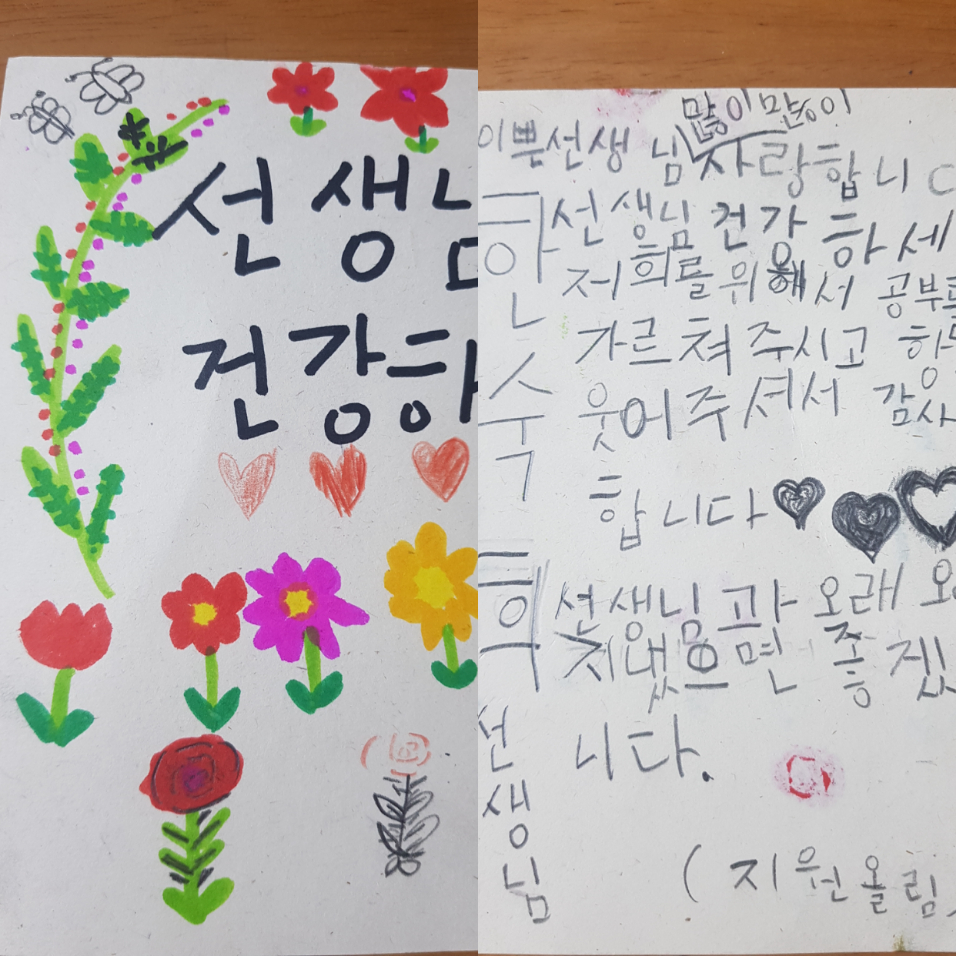 선생님
건강하
많이많이
이쁜선생님 사랑합니다
한수희 선생님
선생님 건강하세
저희를 위해서 공부를
가르쳐 주시고 항
웃어주셔서 감사
합니다
선생님과 오래
지냈으면 좋겠
니다.
(지원올림)